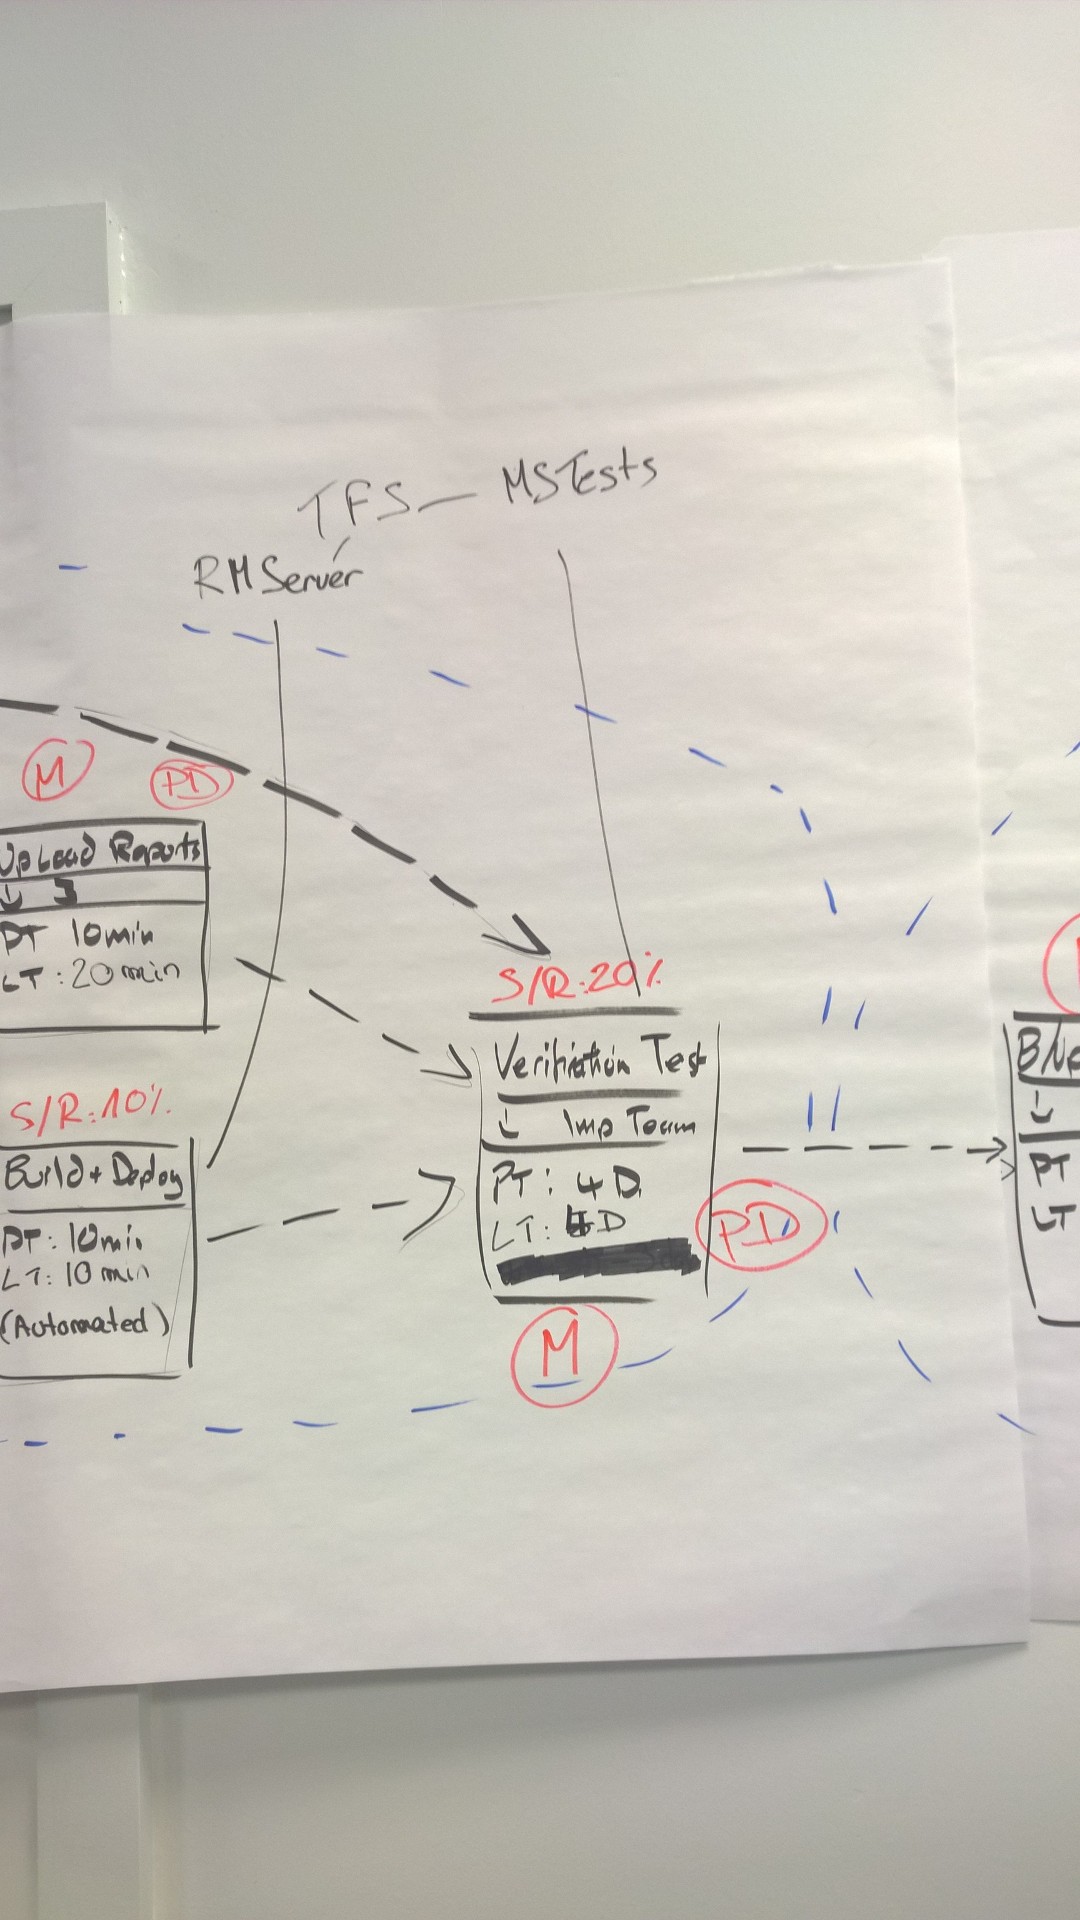 TFS — MSTests
RM Server
M
PD
Upload Reports
3
PT 10min
LT: 20min
S/R: 10%
Build + Deploy
PT: 10min
LT: 10min
(Automated)
S/R: 20%
Verifiation Test
Imp Team
PT: 4D
LT: 4D
PD
M
PT
LT